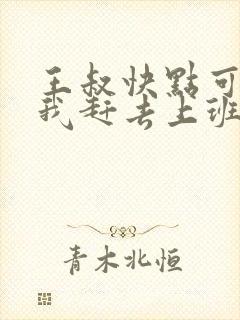 王叔快點可
我赶去上班
青木北恒